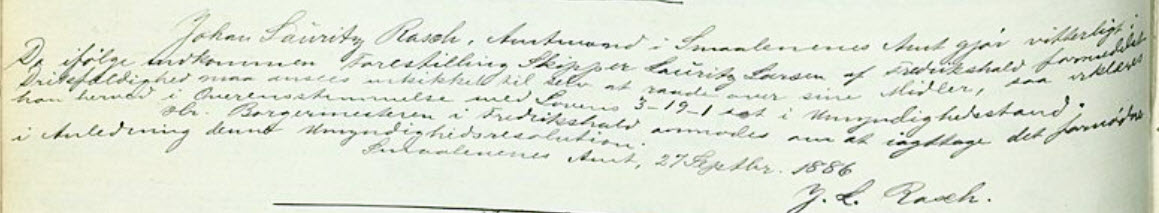 Johan Lauritz Rasch, Amtmand i Smaalenenes Amt gjør vitterligt:
Da ifølge indkommen Forestilling Skipper Lauritz Larsen af Fredrikshald formedelst
Drikfældighed maa ansees uskikket til selv at raade over sine Midler, saa erklæres
han herved i Overensstemmelse med Lovens 3-19-1 sat i Umyndighedsstand.
Hr. Borgermesteren i Fredrikshald anmodes om at iagttage det fornødne
i Anledning denne Umyndighedsresolution.
Smaalenenes Amt, 27 Septbr. 1886
J. L. Rasch.